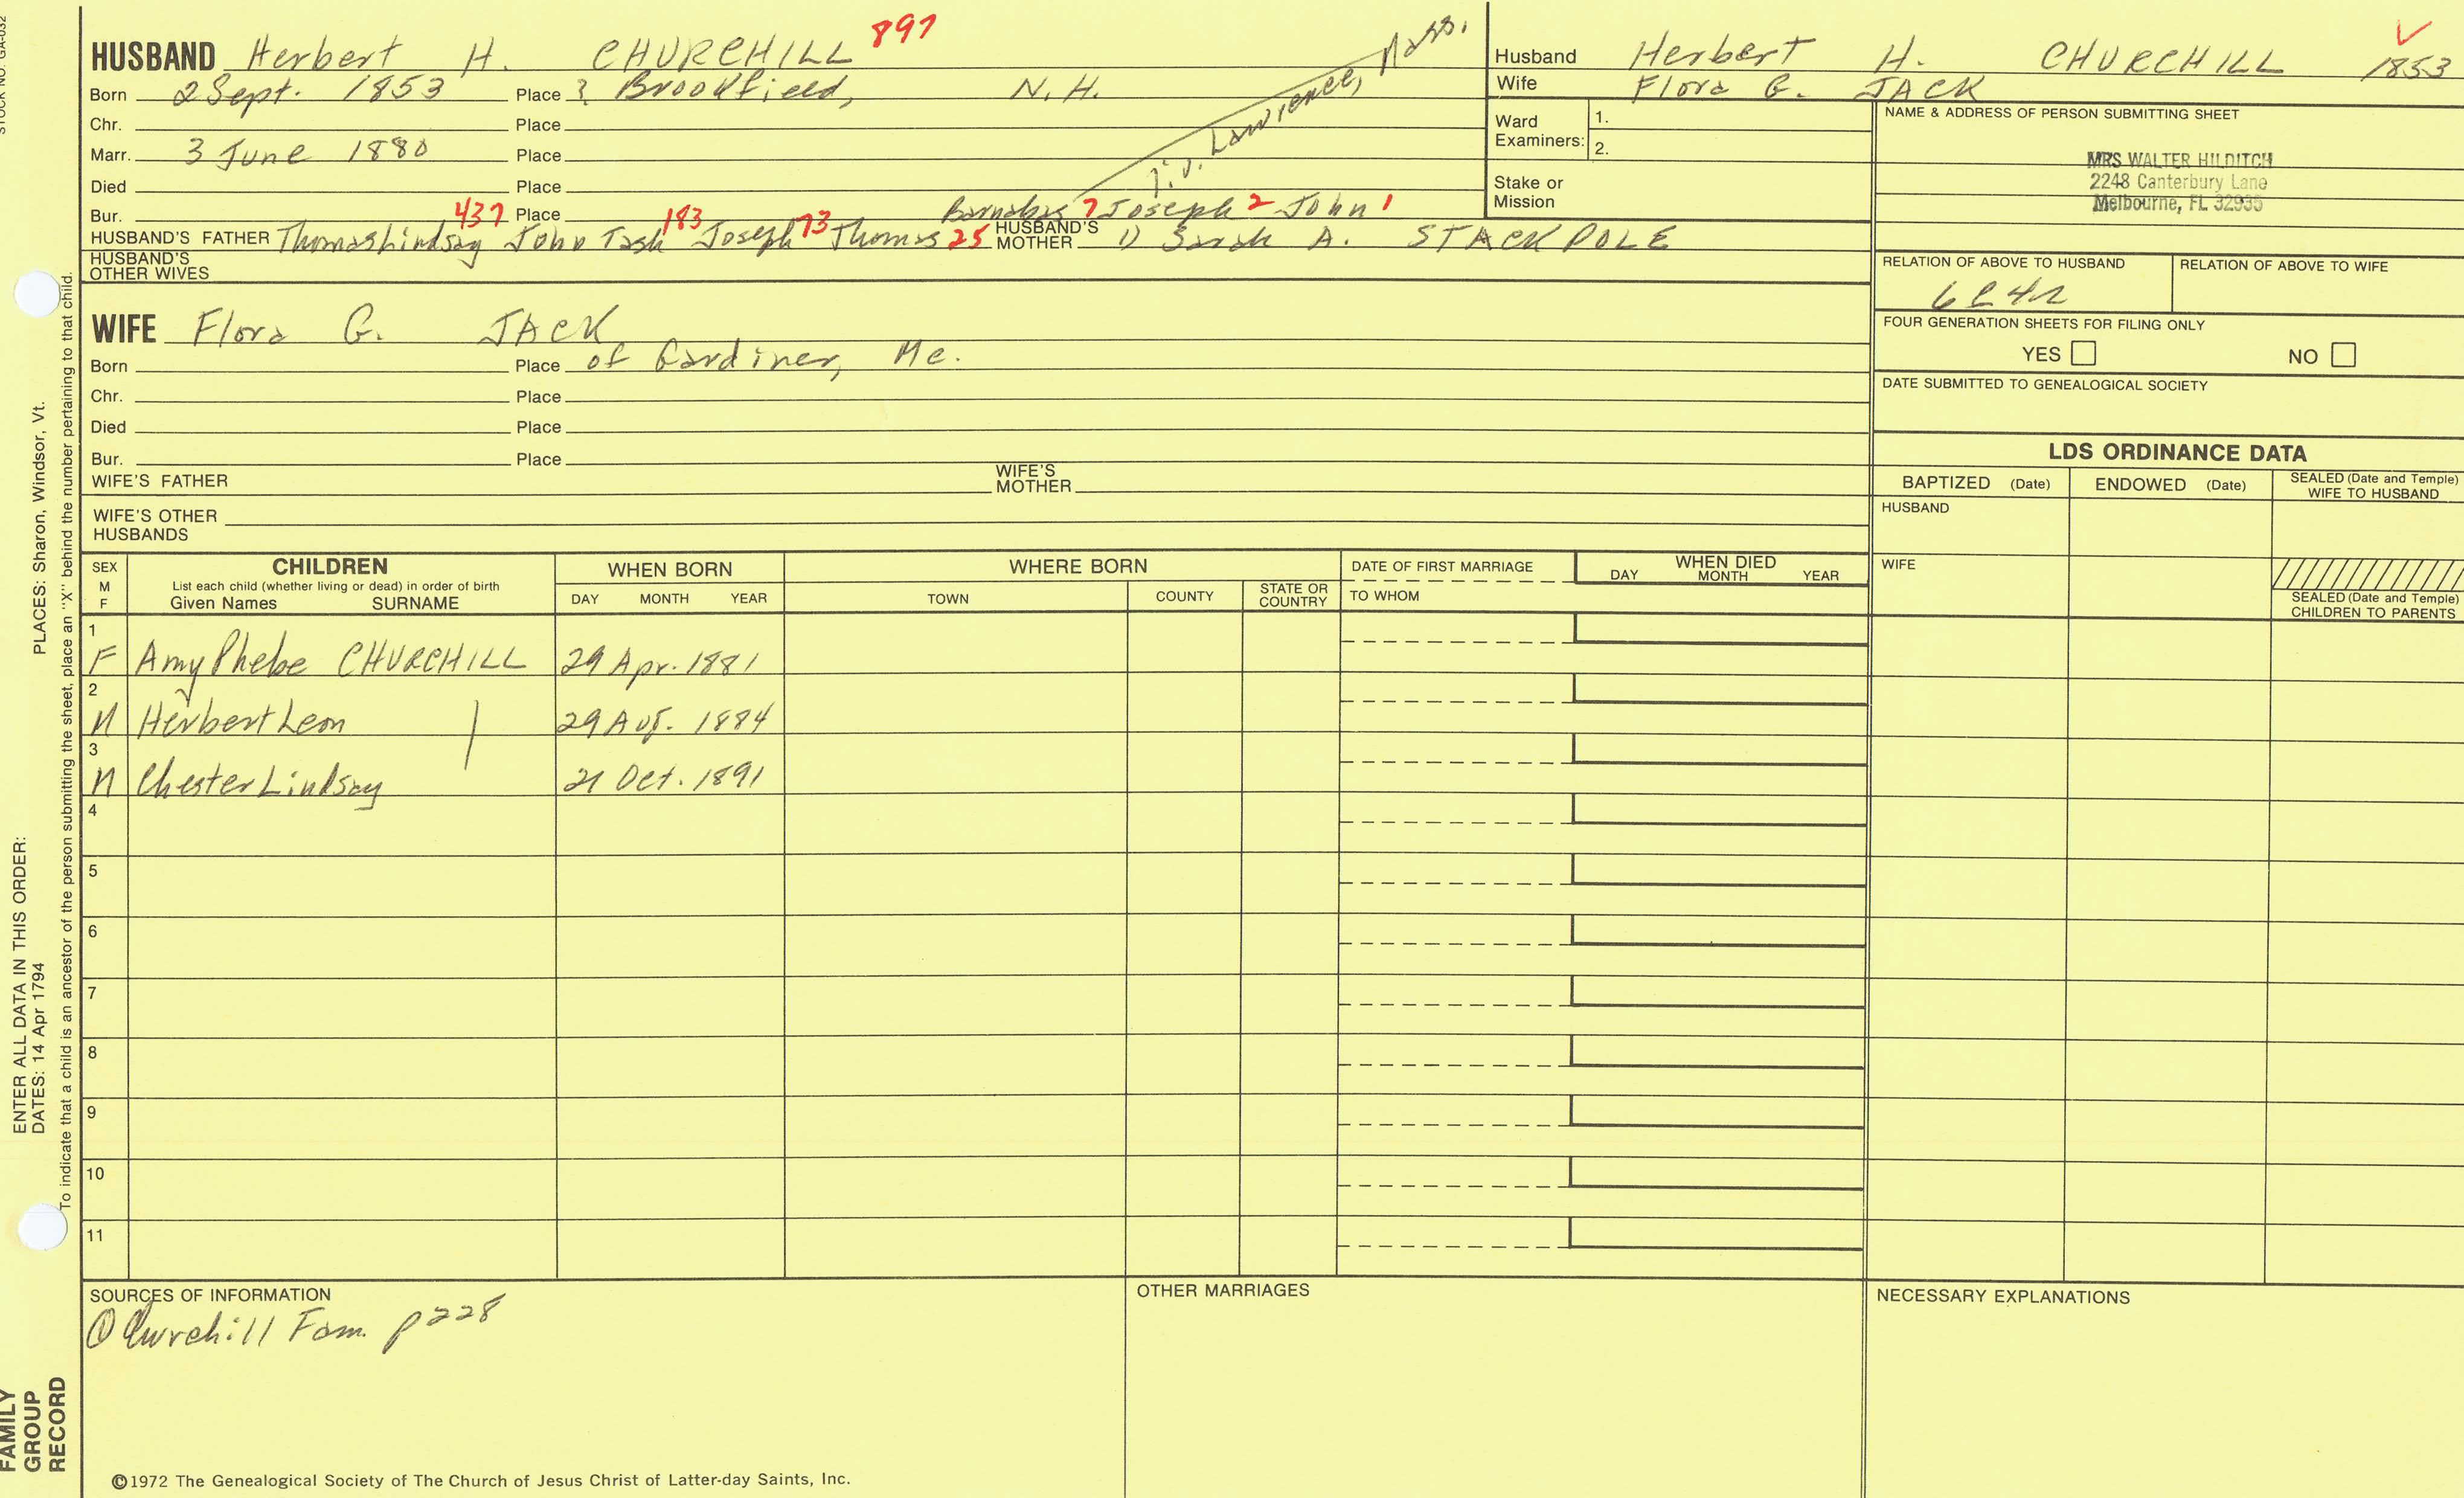 STOCK NO. GA-032
HUSBAND Herbert H. CHURCHILL 897
Born 2 Sept. 1853 Place ? Brookfield, N.H.
Chr. Place
Marr. 3 June 1880 Place
Died Place
Bur. Place
Lawrence, Mass.
Barnabas 7 Joseph 2 John 1
HUSBAND'S FATHER Thomas Lindsay 437 John Tash 183 Joseph 73 Thomas 25 HUSBAND'S MOTHER 1) Sarah A. STACKPOLE
HUSBAND'S OTHER WIVES
WIFE Flora G. JACK
Born Place of Gardiner, Me.
Chr. Place
Died Place
Bur. Place
WIFE'S FATHER WIFE'S MOTHER
WIFE'S OTHER HUSBANDS
Husband Herbert H. CHURCHILL 1853
Wife Flora G. JACK
Ward Examiners: 1.
2.
Stake or Mission
NAME & ADDRESS OF PERSON SUBMITTING SHEET
MRS WALTER HILDITCH
2248 Canterbury Lane
Melbourne, FL 32935
RELATION OF ABOVE TO HUSBAND RELATION OF ABOVE TO WIFE
6C4R
FOUR GENERATION SHEETS FOR FILING ONLY
YES NO
DATE SUBMITTED TO GENEALOGICAL SOCIETY
LDS ORDINANCE DATA
BAPTIZED (Date) ENDOWED (Date) SEALED (Date and Temple) WIFE TO HUSBAND
HUSBAND
WIFE
SEALED (Date and Temple) CHILDREN TO PARENTS
SEX M F
CHILDREN
List each child (whether living or dead) in order of birth
Given Names SURNAME
WHEN BORN
DAY MONTH YEAR
WHERE BORN
TOWN COUNTY STATE OR COUNTRY
DATE OF FIRST MARRIAGE
TO WHOM
WHEN DIED
DAY MONTH YEAR
1 F Amy Phebe CHURCHILL 29 Apr. 1881
2 M Herbert Leon 29 Aug. 1884
3 M Chester Lindsay 21 Oct. 1891
4
5
6
7
8
9
10
11
SOURCES OF INFORMATION
① Churchill Fam. p228
OTHER MARRIAGES
NECESSARY EXPLANATIONS
©1972 The Genealogical Society of The Church of Jesus Christ of Latter-day Saints, Inc.
FAMILY GROUP RECORD
ENTER ALL DATA IN THIS ORDER:
DATES: 14 Apr 1794 PLACES: Sharon, Windsor, Vt.
To indicate that a child is an ancestor of the person submitting the sheet, place an "X" behind the number pertaining to that child.